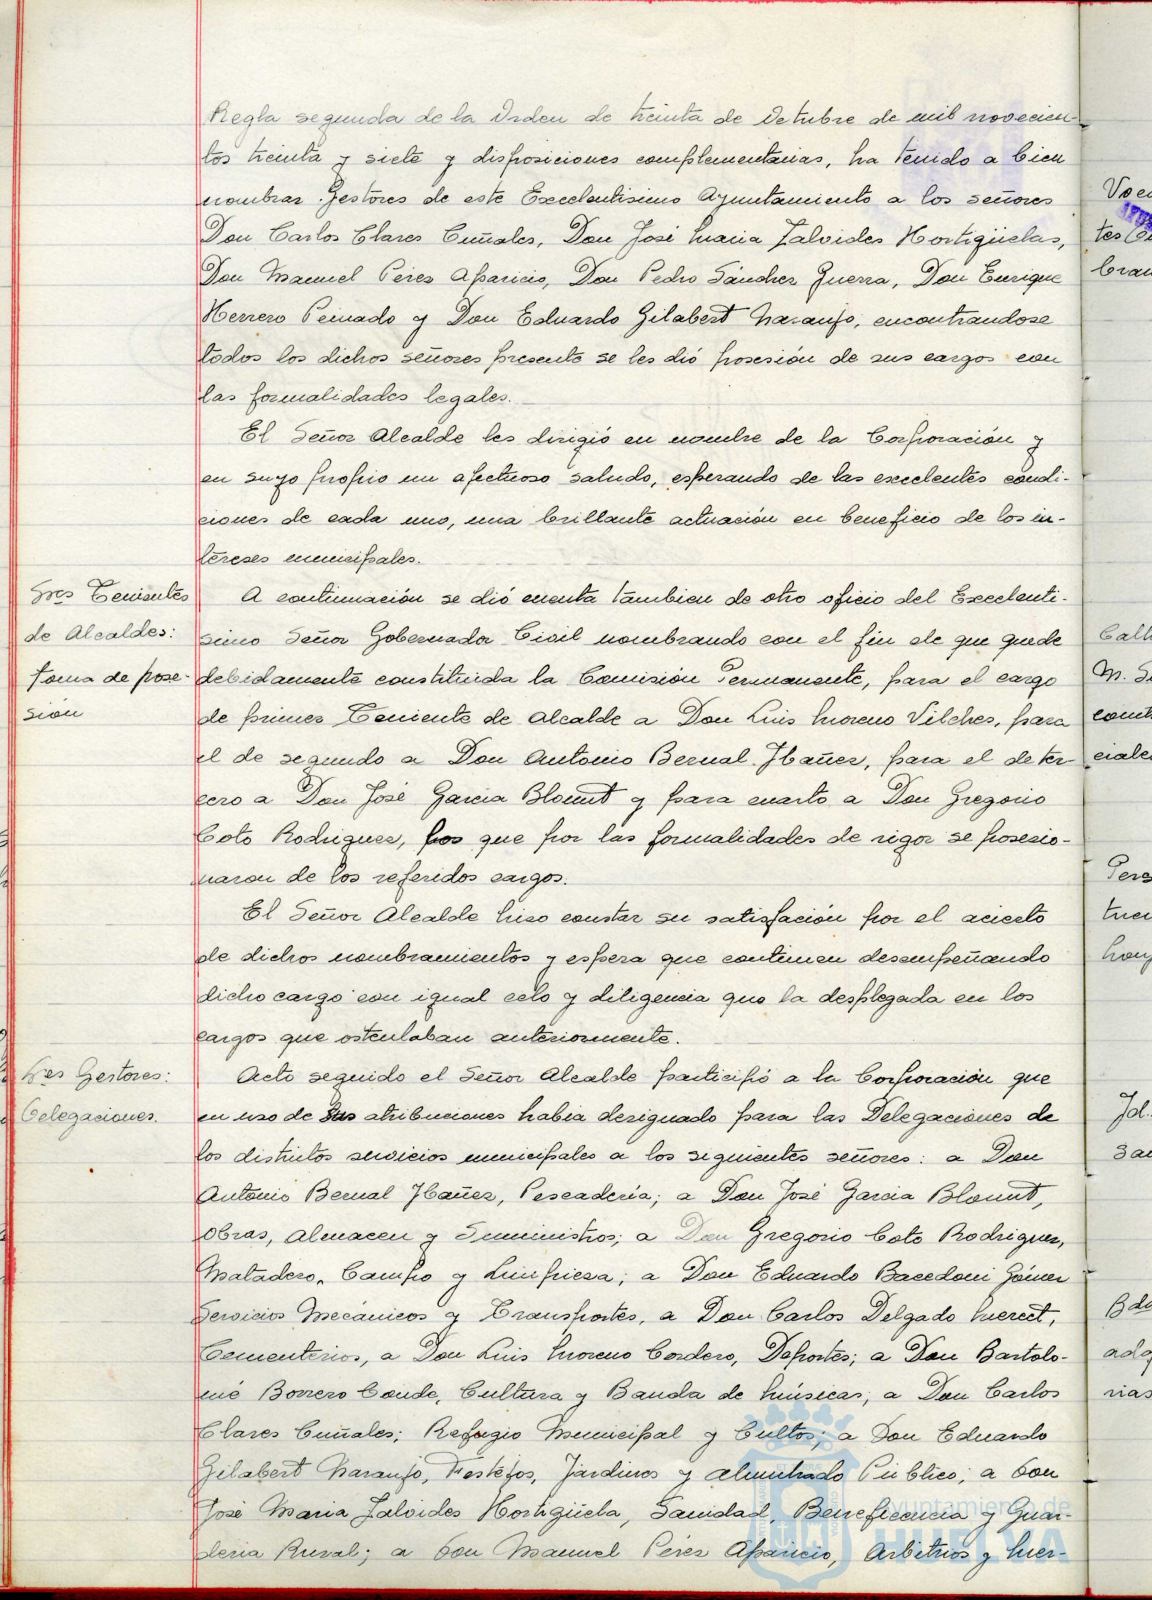 Regla segunda de la Orden de treinta de Octubre de mil novecien-
tos treinta y siete y disposiciones complementarias, ha tenido a bien
nombrar Gestores de este Excelentisimo Ayuntamiento a los señores
Don Carlos Clares Cuñales, Don José Maria Zalvides Hortigüelas,
Don Manuel Péres Aparicio, Don Pedro Sánches Guerra, Don Enrique
Herrero Peinado y Don Eduardo Gilabert Naranjo, encontrandose
todos los dichos señores presente se les dió posesión de sus cargos con
las formalidades legales.
El Señor Alcalde les dirigió en nombre de la Corporación y
en suyo propio un afectuoso saludo, esperando de las excelentes condi-
ciones de cada uno, una brillante actuación en beneficio de los in-
tereses municipales.
Sres Tenientes
de Alcaldes:
toma de pose-
sión
A continuación se dió cuenta tambien de otro oficio del Excelenti-
simo Señor Gobernador Civil nombrando con el fin de que quede
debidamente constituida la Comisión Permanente, para el cargo
de primer Teniente de Alcalde a Don Luis Moreno Vilches, para
el de segundo a Don Antonio Bernal Ibañez, para el de ter-
cero a Don José Garcia Blount y para cuarto a Don Gregorio
Coto Rodriguez, los que por las formalidades de rigor se posesio-
naron de los referidos cargos.
El Señor Alcalde hiso constar su satisfación por el acierto
de dichos nombramientos y espera que continuen desempeñando
dicho cargo con igual celo y diligencia que la desplegada en los
cargos que ostentaban anteriormente.
Sres Gestores:
Delegaciones.
Acto seguido el Señor Alcalde participó a la Corporación que
en uso de sus atribuciones habia designado para las Delegaciones de
los distintos servicios municipales a los siguientes señores: a Don
Antonio Bernal Ibañez, Pescadería; a Don José Garcia Blount,
Obras, Almacen y Suministros; a Don Gregorio Coto Rodriguez,
Matadero, Campo y Limpiesa; a Don Eduardo Bacedoni Gómez
Servicios Mecánicos y Transportes, a Don Carlos Delgado
Cementerios, a Don Luis Moreno Cordero, Deportes; a Don Bartolo-
mé Borrero Conde, Cultura y Banda de Músicas; a Don Carlos
Clares Cuñales; Refugio Municipal y Cultos; a Don Eduardo
Gilabert Naranjo, Festejos, Jardines y Alumbrado Público; a Don
José Maria Zalvides Hortigüela, Sanidad, Beneficencia y Guar-
deria Rural; a Don Manuel Péres Aparicio, Arbitrios y Mer-
Ayuntamiento de
HUELVA